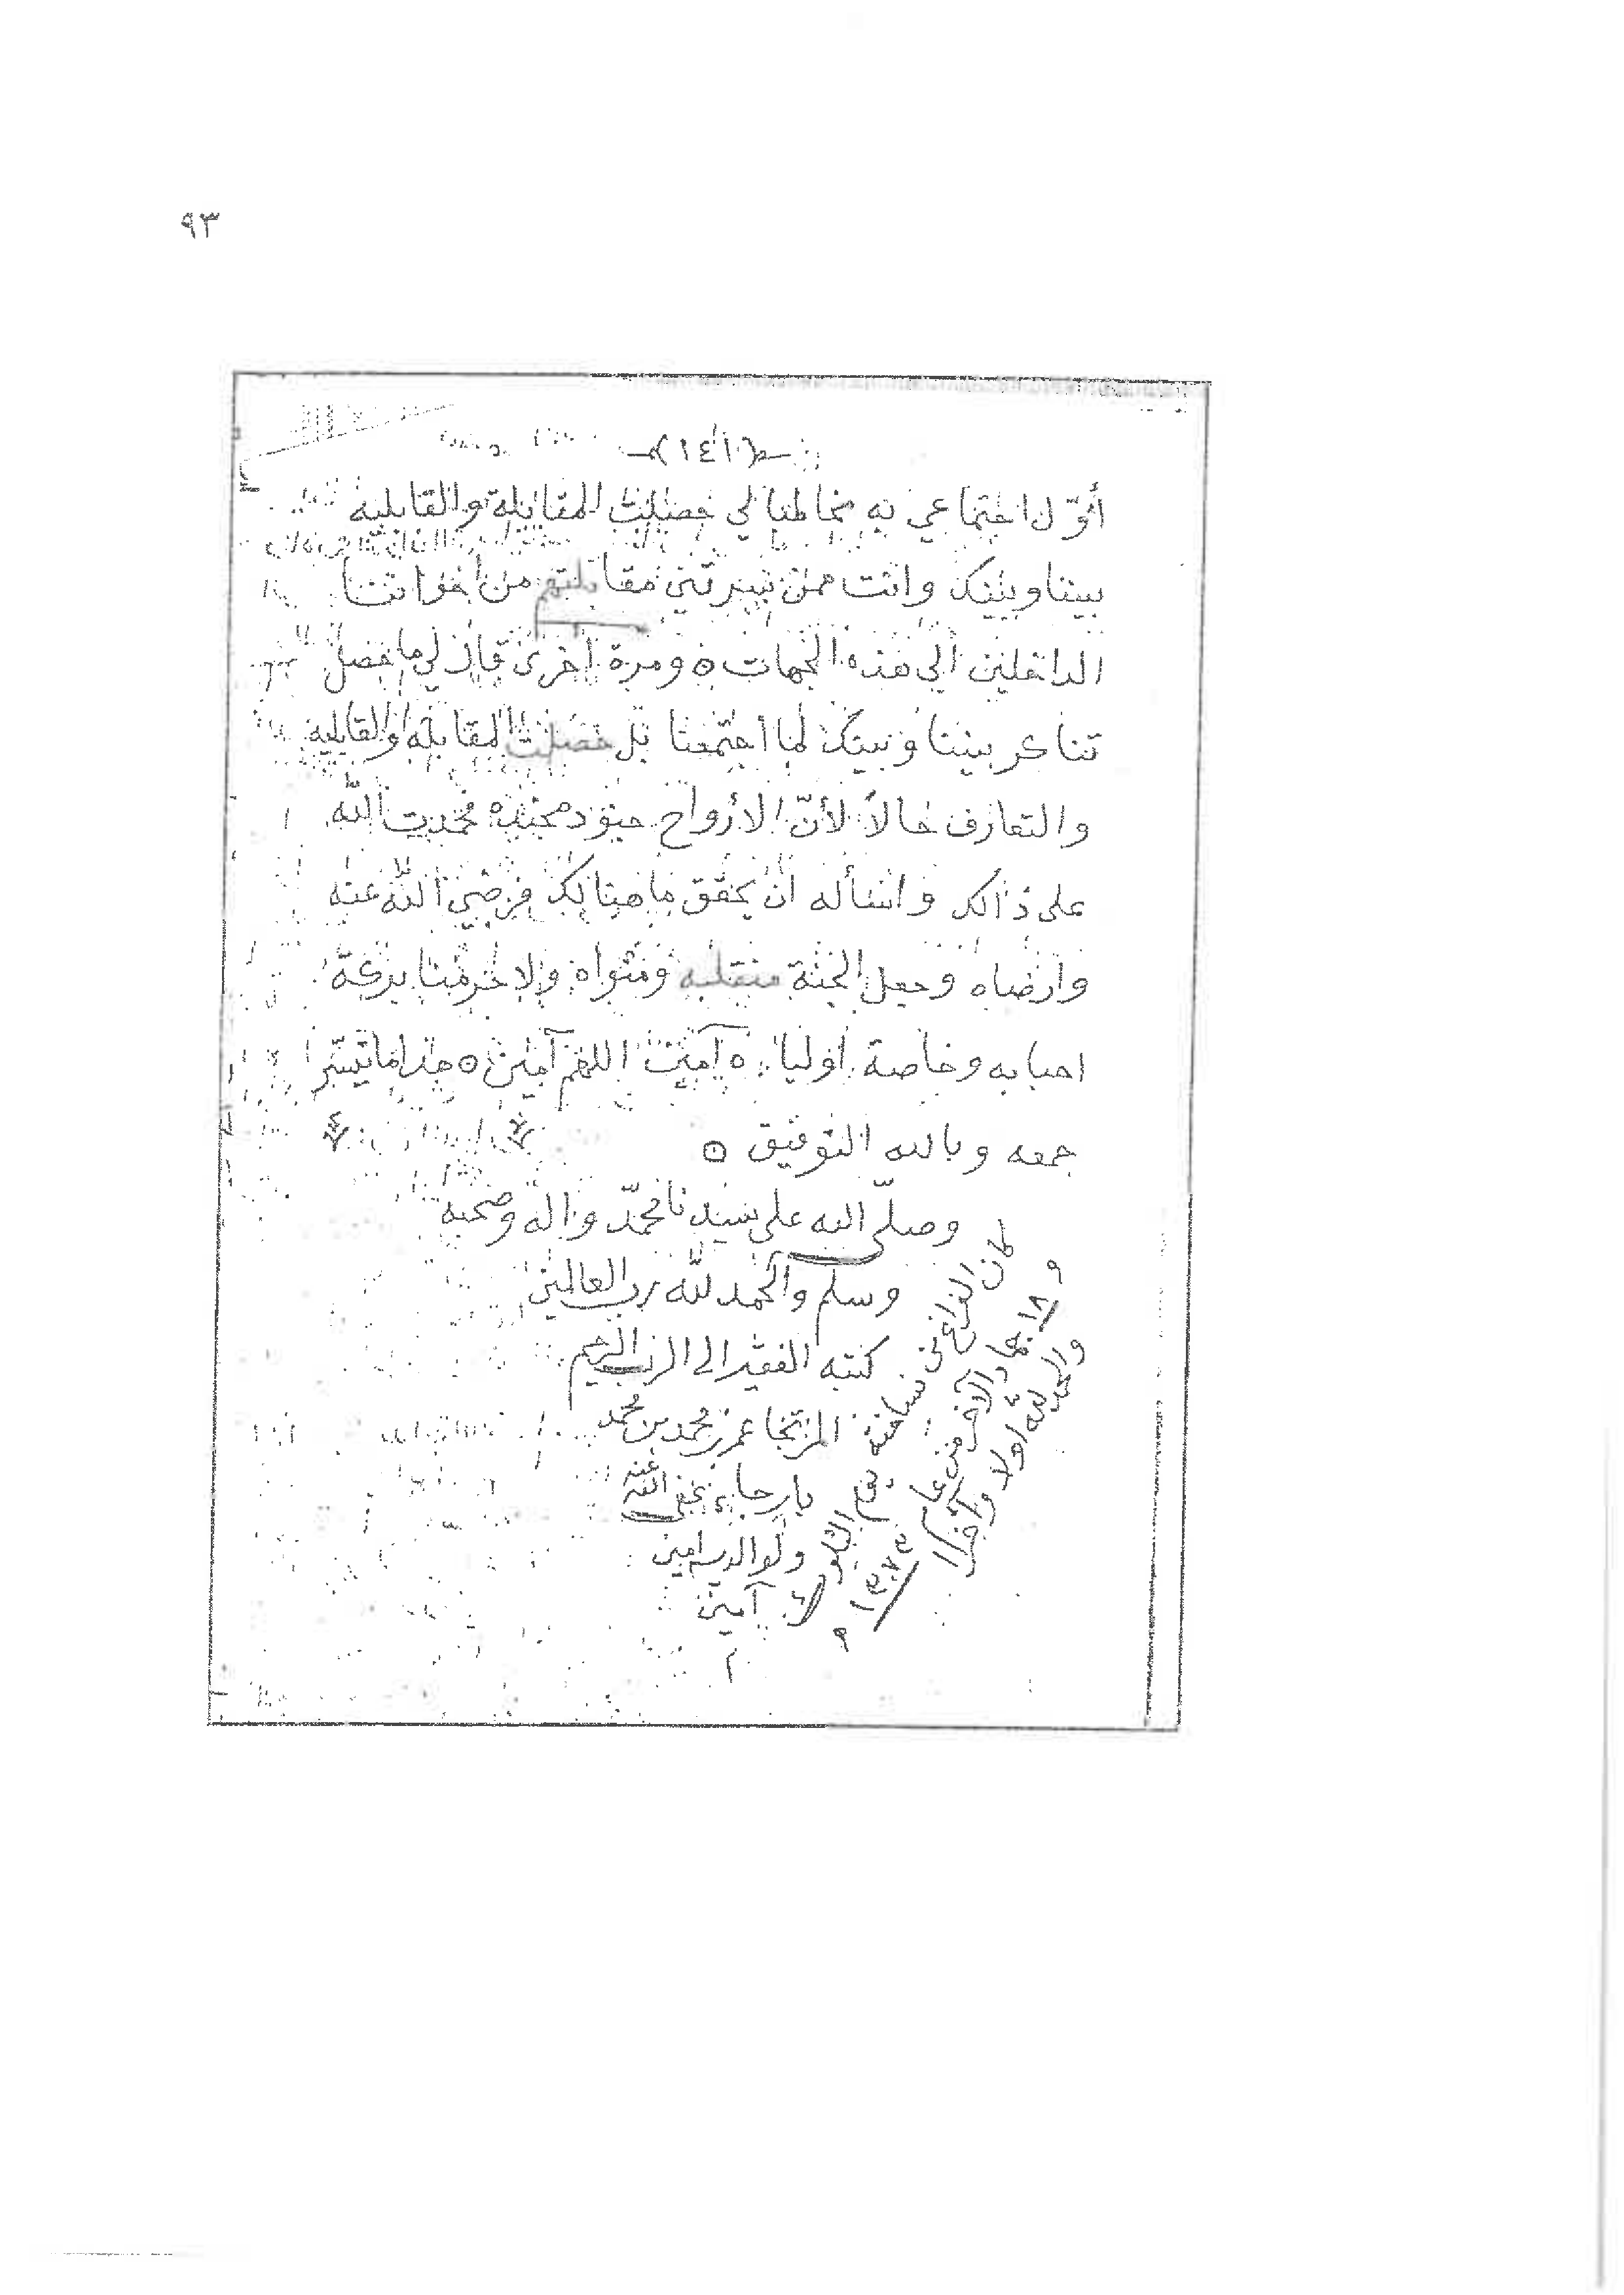 ٩٣
(١٤١)
أوّل اجتماعي به مخاطبا لي حصلت المقابلة والقابلية
بيننا وبينك وانت ممن تيسرتني مقابلتهم من اخواننا
الداخلين الى هذه الجهات ٥ ومرة اخرى قال لي ما حصل
تناكر بيننا وبينك لما اجتمعنا بل حصلت المقابله والقابليه
والتعارف حالاً لأنّ الأرواح جنود مجنده فحمدت الله
على ذالك واسأله ان يحقق ما هنالك فرضي الله عنه
وارضاه وجعل الجنة منقلبه ومثواه ولا حرمنا بركة
احبابه وخاصة أوليا.ه آمين اللهم آمين ٥ هذا ما تيسّر
جمعه وبالله التوفيق ٥
وصلّى الله على سيدنا محمّد وآله وصحبه
وسلم والحمد لله رب العالمين
كتبه الفقير الى الرب الرحيم
المرتجا عمر بن محمد بن محمد
بارجاء عفى الله عنه
ولوالديه امين
آمين
كان الفراغ من يوم الثلوث
و ١٨ جماد الآخر من عام ١٣٧٥
والحمد لله اولا وآخرا